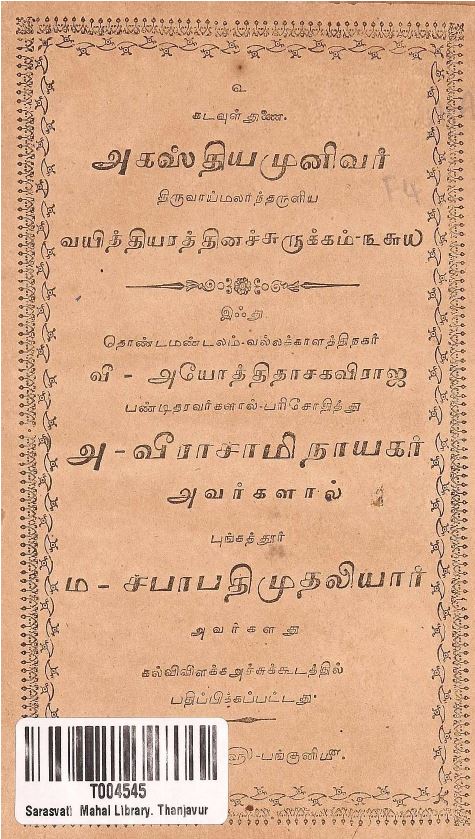 உ
கடவுள் துணை.
அகஸ்தியமுனிவர்
திருவாய்மலர்ந்தருளிய
வயித்தியரத்தினச்சுருக்கம்-௩௬௰
இஃது
தொண்டமண்டலம்-வல்லக்காளத்திநகர்
வீ - அயோத்திதாசகவிராஜ
பண்டிதரவர்களால்-பரிசோதித்து
அ - வீராசாமி நாயகர்
அவர்களால்
புங்கத்தூர்
ம - சபாபதி முதலியார்
அவர்களது
கல்விவிளக்கஅச்சுக்கூடத்தில்
பதிப்பிக்கப்பட்டது.
௵-பங்குனி௴.
T004545
Sarasvati Mahal Library, Thanjavur
F4